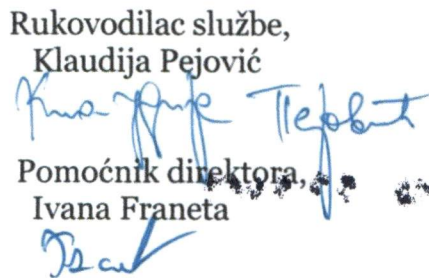 Rukovodilac službe,
Klaudija Pejović
Клаудија Пејовић
Pomoćnik direktora,
Ivana Franeta